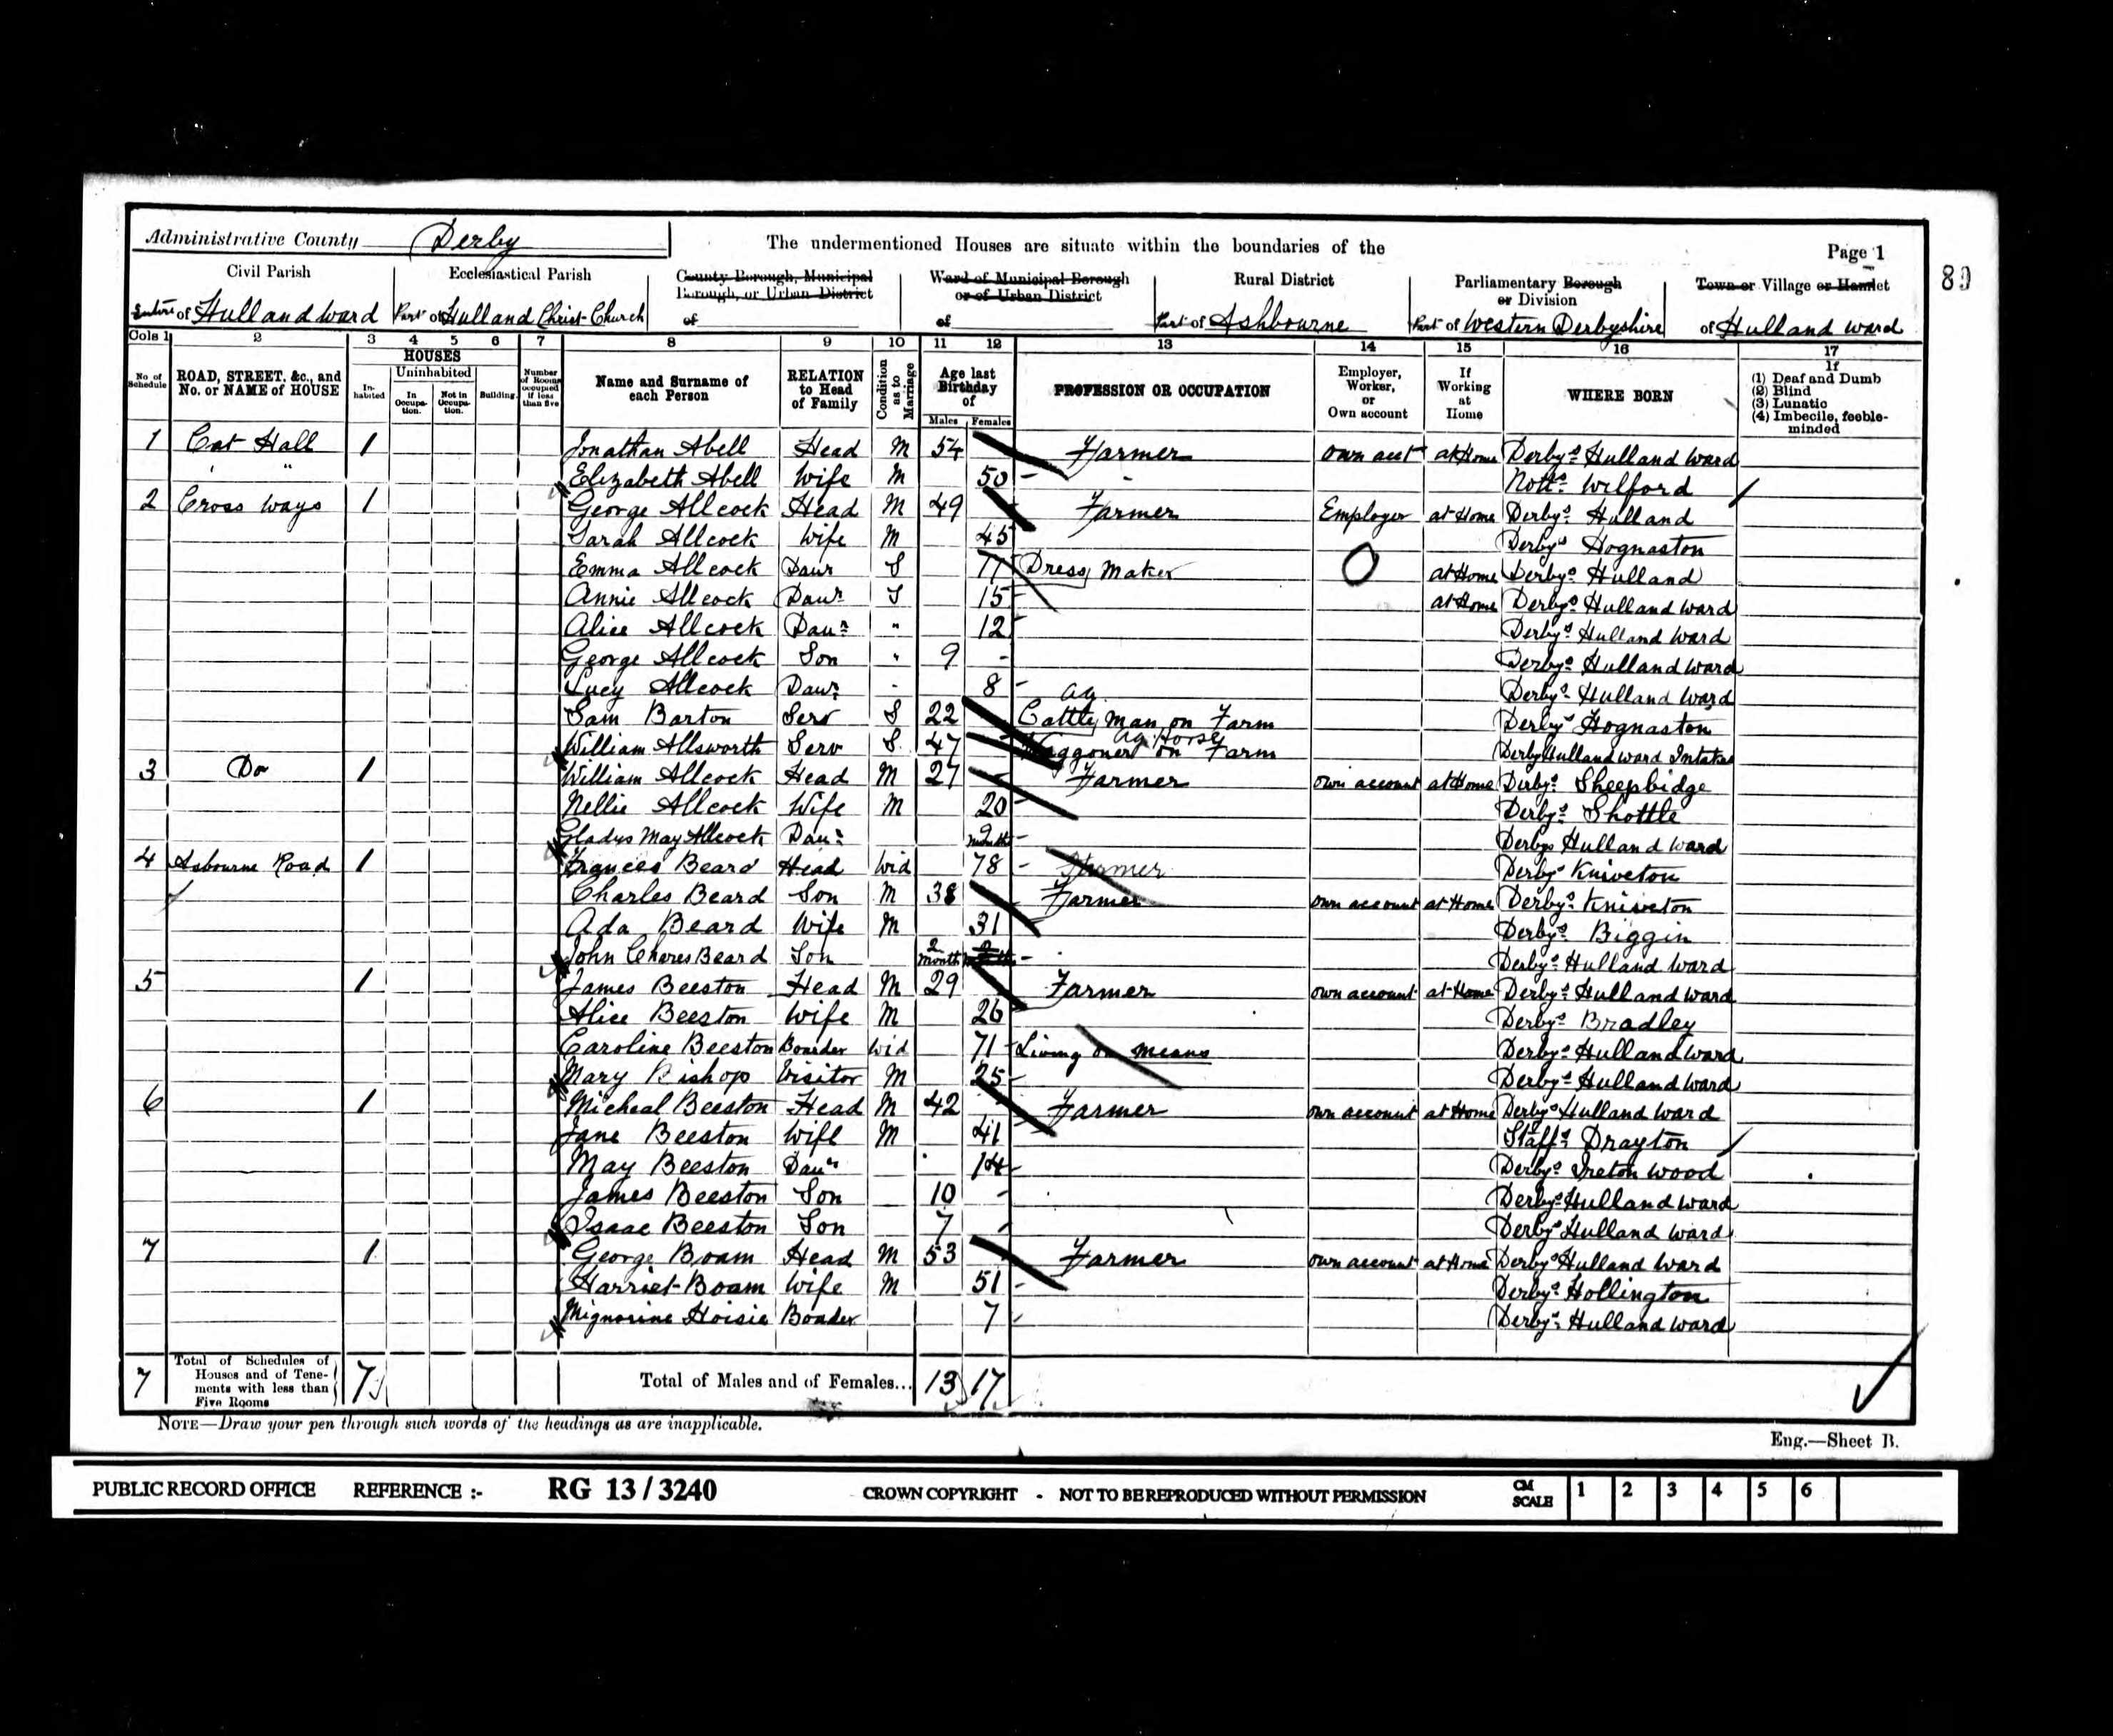 Administrative County Derby The undermentioned Houses are situate within the boundaries of the Page 1
80
Civil Parish Ecclesiastical Parish County Borough, Municipal Borough, or Urban District Ward of Municipal Borough or of Urban District Rural District Parliamentary Borough or Division Town or Village or Hamlet
Entire of Hulland Ward Part of Hulland Christ Church of of Part of Ashbourne Part of Western Derbyshire of Hulland Ward
Cols 1 2 3 4 5 6 7 8 9 10 11 12 13 14 15 16 17
No. of Schedule ROAD, STREET, &c., and No. or NAME of HOUSE HOUSES Inhabited Uninhabited In Occupation. Not in Occupation. Building. Number of Rooms occupied if less than five Name and Surname of each Person RELATION to Head of Family Condition as to Marriage Age last Birthday of Males Females PROFESSION OR OCCUPATION Employer, Worker, or Own account If Working at Home WHERE BORN If (1) Deaf and Dumb (2) Blind (3) Lunatic (4) Imbecile, feeble-minded
1 Cat Hall 1 Jonathan Abell Head M 54 Farmer own acct at Home Derbys Hulland Ward
" " Elizabeth Abell Wife M 50 Notts Wilford
2 Cross Ways 1 George Allcock Head M 49 Farmer Employer at Home Derbys Hulland
Sarah Allcock Wife M 45 Derbys Hognaston
Emma Allcock Daur S 17 Dress Maker O at Home Derbys Hulland
Annie Allcock Daur S 15 at Home Derbys Hulland Ward
Alice Allcock Daur " 12 Derbys Hulland Ward
George Allcock Son " 9 Derbys Hulland Ward
Lucy Allcock Daur " 8 Derbys Hulland Ward
Sam Barton Serv S 22 Cattle Man on Farm ag Derbys Hognaston
William Allsworth Serv S 47 Waggoner on Farm ag Horse Derby Hulland Ward Intakes
3 Do 1 William Allcock Head M 27 Farmer own account at Home Derbys Sheepbridge
Nellie Allcock Wife M 20 Derbys Shottle
Gladys May Allcock Daur months Derbys Hulland Ward
4 Asbourne Road 1 Frances Beard Head Wid 78 Farmer Derbys Kniveton
Charles Beard Son M 38 Farmer own account at Home Derbys Kniveton
Ada Beard Wife M 31 Derbys Biggin
John Chares Beard Son 2 month Derbys Hulland Ward
5 1 James Beeston Head M 29 Farmer own account at Home Derbys Hulland Ward
Alice Beeston Wife M 26 Derbys Bradley
Caroline Beeston Boarder Wid 71 Living on means Derbys Hulland Ward
Mary Bishop Visitor M 25 Derbys Hulland Ward
6 1 Micheal Beeston Head M 42 Farmer own account at Home Derbys Hulland Ward
Jane Beeston Wife M 41 Staffs Drayton
May Beeston Daur 14 Derbys Ireton Wood
James Beeston Son 10 Derbys Hulland Ward
Isaac Beeston Son 7 Derbys Hulland Ward
7 1 George Boam Head M 53 Farmer own account at Home Derbys Hulland Ward
Harriet Boam Wife M 51 Derbys Hollington
Boader 7 Derbys Hulland Ward
7 Total of Schedules of Houses and of Tenements with less than Five Rooms 7 Total of Males and of Females... 13 17
NOTE—Draw your pen through such words of the headings as are inapplicable.
Eng.—Sheet B.
PUBLIC RECORD OFFICE REFERENCE :- RG 13/3240 CROWN COPYRIGHT - NOT TO BE REPRODUCED WITHOUT PERMISSION CM SCALE 1 2 3 4 5 6